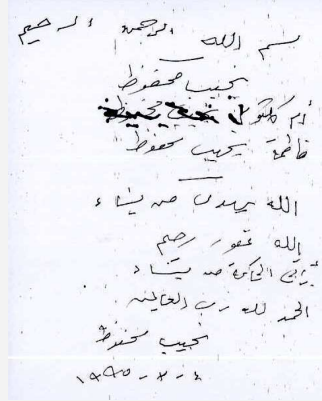 بسم الله الرحمن الرحيم
نجيب محفوظ
أم كلثوم نجيب محفوظ
فاطمة نجيب محفوظ
الله يهدى من يشاء
الله غفور رحيم
الحكمة من يشاء
الحمد لله رب العالمين
نجيب محفوظ